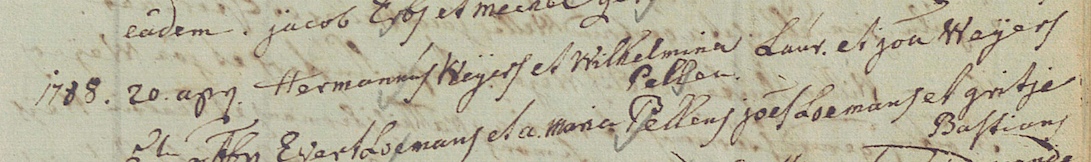 eadem. jacob Erbs et mechel
1788. 20. apr. Hermannus Weijers et Wilhelmina Laur. et joa Weijers
Pellen.
Evert Loemans et a. maria Pellens joes Loemans et gritje
Bastians